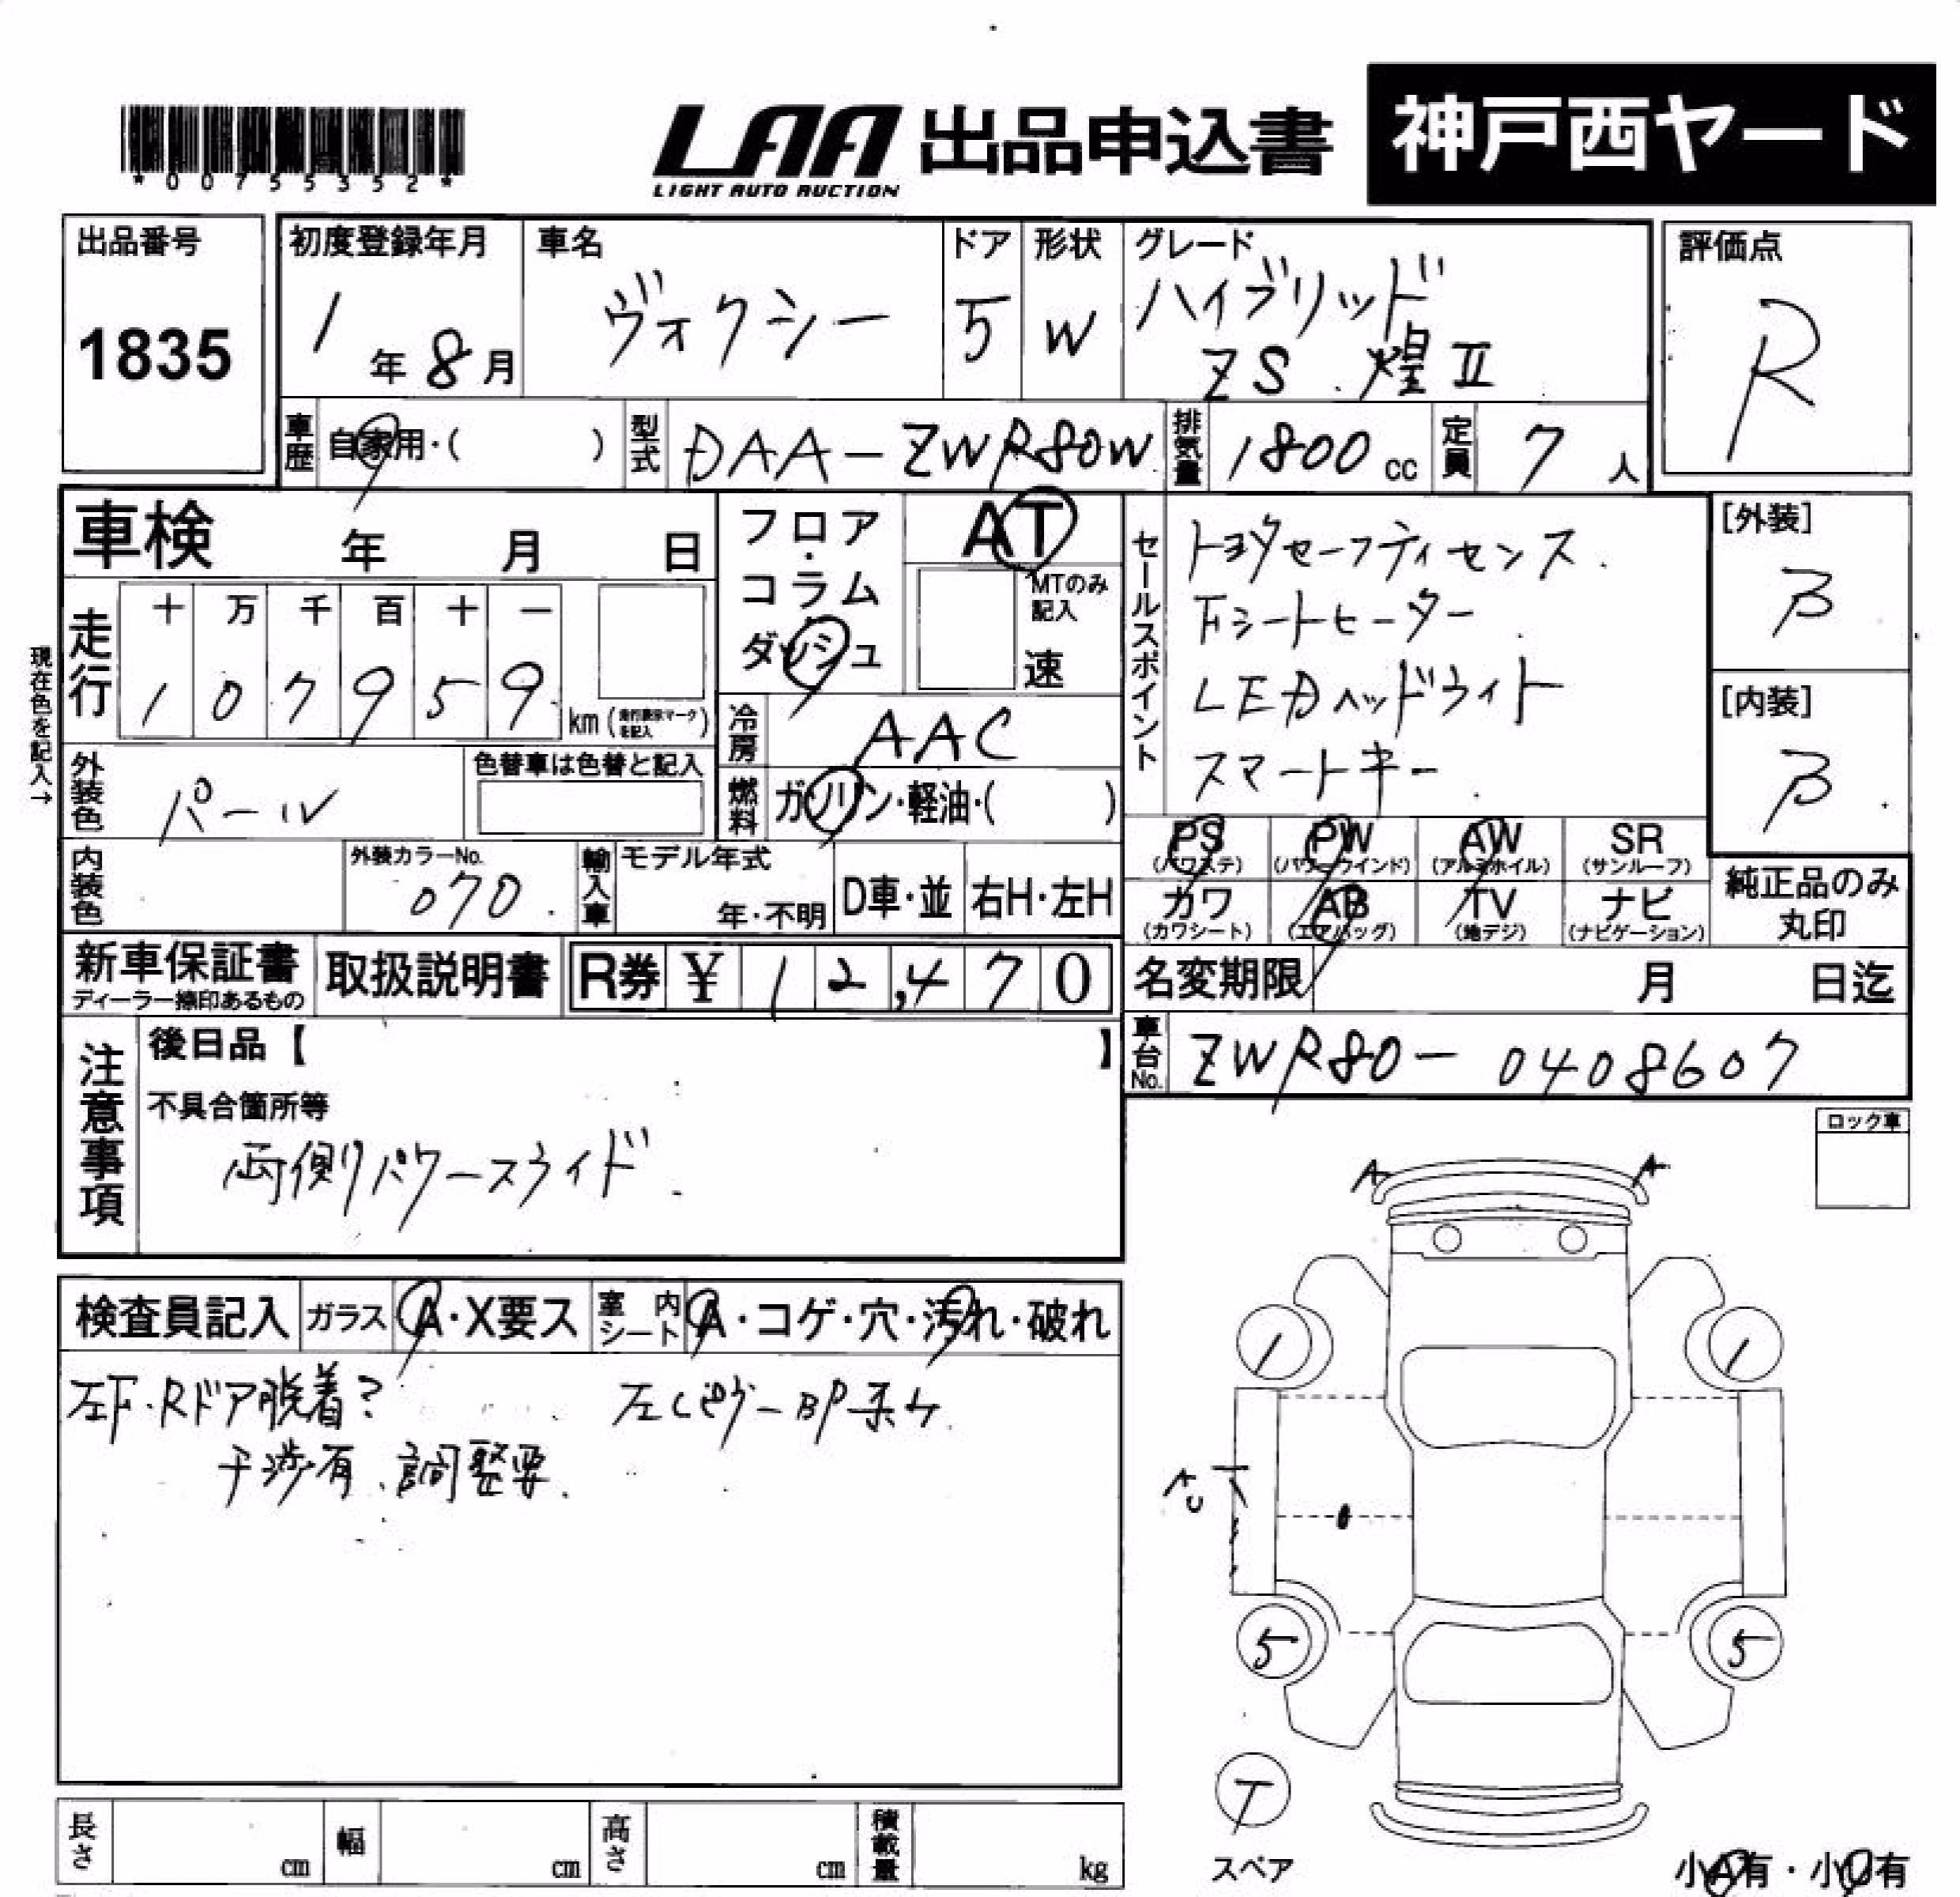 *00755352*
LAA 出品申込書 神戸西ヤード
LIGHT AUTO AUCTION
出品番号
1835
初度登録年月
1年8月
車名
ヴォクシー
ドア
5
形状
W
グレード
ハイブリッド
ZS 煌II
評価点
R
車歴 自家用・( )
型式 DAA-ZWR80W
排気量 1800cc
定員 7人
車検 年 月 日
走行
十 万 千 百 十 一
1 0 7 9 5 9 km (走行表示マークを記入)
現在色を記入→
フロア・コラム・ダッシュ
AT
MTのみ記入
速
冷房 AAC
燃料 ガソリン・軽油・( )
外装色 パール
色替車は色替と記入
内装色
外装カラーNo.
070.
輸入車
モデル年式
年・不明
D車・並
右H・左H
セールスポイント
トヨタセーフティセンス.
Fシートヒーター.
LEDヘッドライト
スマートキー.
[外装]
B
[内装]
B
PS (パワステ)
PW (パワーウインド)
AW (アルミホイル)
SR (サンルーフ)
カワ (カワシート)
AB (エアバッグ)
TV (地デジ)
ナビ (ナビゲーション)
純正品のみ
丸印
新車保証書
ディーラー捺印あるもの
取扱説明書
R券 ¥12,470
名変期限 月 日迄
車台No. ZWR80-0408607
注意事項
後日品【 】
不具合箇所等
両側パワースライド.
ロック車
検査員記入
ガラス A・X要ス
室内シート A・コゲ・穴・汚れ・破れ
左F・Rドア脱着?
干渉有、調整要.
左Cピラー BP
A A
1 1
A U
5 5
T
スペア
長さ cm
幅 cm
高さ cm
積載量 kg
小A有・小U有